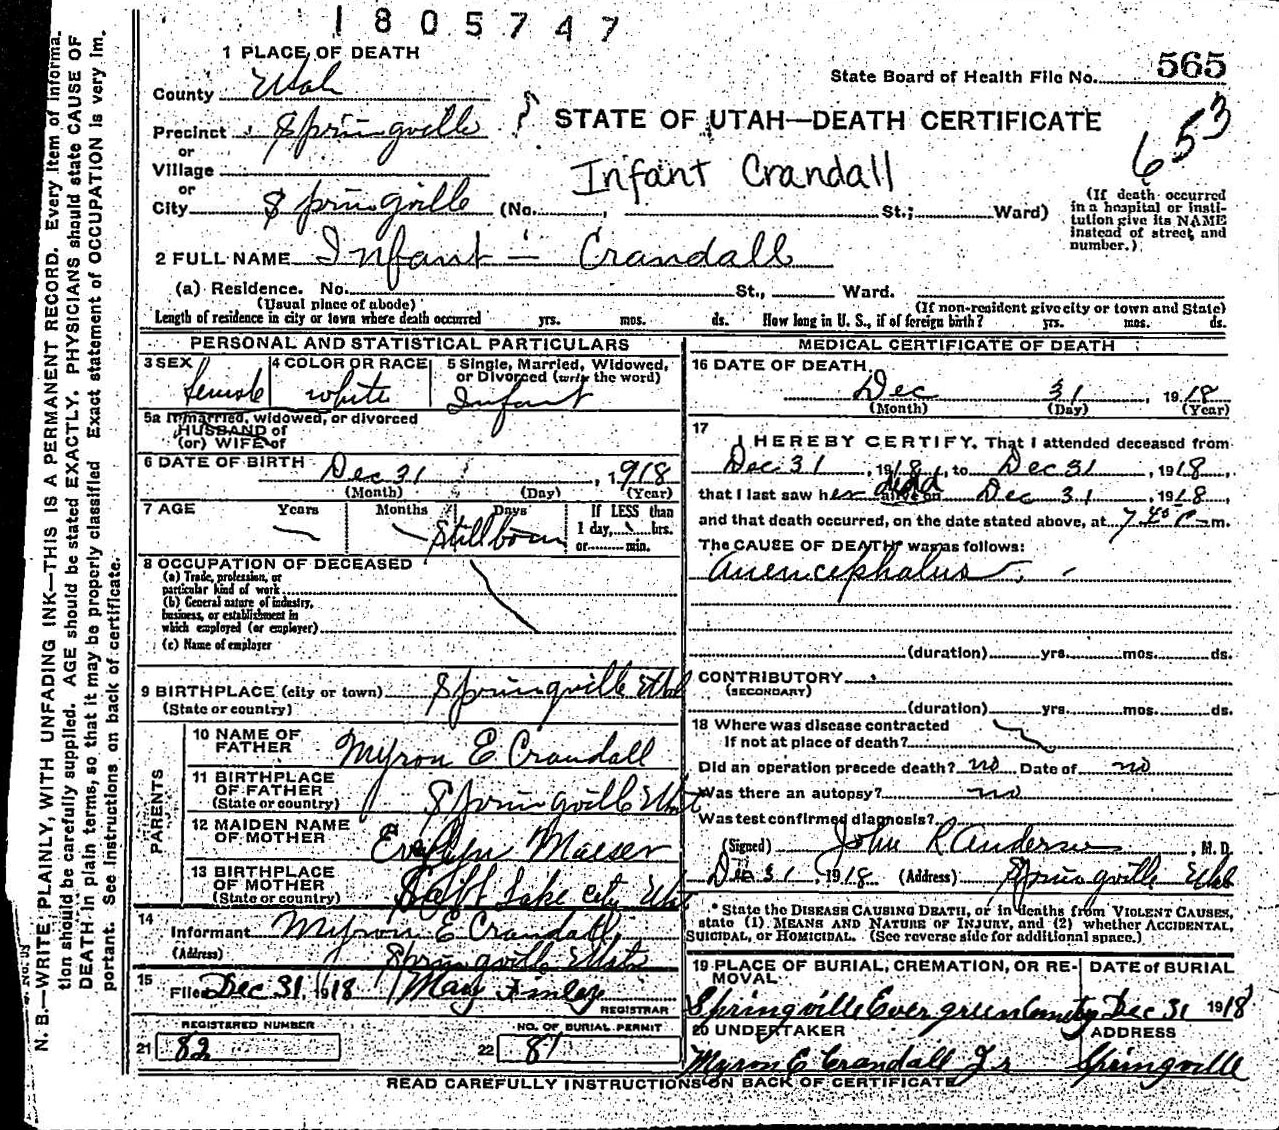 1805747
1 PLACE OF DEATH
State Board of Health File No. 565
County Utah
653
STATE OF UTAH—DEATH CERTIFICATE
Precinct Springville
or
Village
Infant Crandall
or
City Springville (No. , St.; Ward)
(If death occurred in a hospital or insti-
tution give its NAME instead of street and number.)
2 FULL NAME Infant - Crandall
(a) Residence. No. St., Ward.
(Usual place of abode) (If non-resident give city or town and State)
Length of residence in city or town where death occurred yrs. mos. ds. How long in U. S., if of foreign birth? yrs. mos. ds.
PERSONAL AND STATISTICAL PARTICULARS
3 SEX female
4 COLOR OR RACE white
5 Single, Married, Widowed,
or Divorced (write the word)
Infant
5a If married, widowed, or divorced
HUSBAND of
(or) WIFE of
6 DATE OF BIRTH Dec 31, 1918
(Month) (Day) (Year)
7 AGE Years Months Days If LESS than
1 day, hrs.
or min.
Stillborn
8 OCCUPATION OF DECEASED
(a) Trade, profession, or
particular kind of work
(b) General nature of industry,
business, or establishment in
which employed (or employer)
(c) Name of employer
9 BIRTHPLACE (city or town) Springville Utah
(State or country)
PARENTS
10 NAME OF
FATHER Myron E Crandall
11 BIRTHPLACE
OF FATHER
(State or country) Springville Utah
12 MAIDEN NAME
OF MOTHER Evelyn Maeser
13 BIRTHPLACE
OF MOTHER
(State or country) Salt Lake City Utah
14
Informant Myron E Crandall
(Address) Springville Utah
15
Filed Dec 31 1918 May Finley
REGISTRAR
REGISTERED NUMBER
21 82
NO. OF BURIAL PERMIT
22 81
MEDICAL CERTIFICATE OF DEATH
16 DATE OF DEATH
Dec 31, 1918
(Month) (Day) (Year)
17
I HEREBY CERTIFY, That I attended deceased from
Dec 31, 1918, to Dec 31, 1918,
that I last saw her alive on dead Dec 31, 1918,
and that death occurred, on the date stated above, at 7 40 P m.
The CAUSE OF DEATH* was as follows:
Anencephalus
(duration) yrs. mos. ds.
CONTRIBUTORY
(SECONDARY)
(duration) yrs. mos. ds.
18 Where was disease contracted
If not at place of death?
Did an operation precede death? no Date of no
Was there an autopsy? no
Was test confirmed diagnosis?
(Signed) John R Anderson, M.D.
Dec 31, 1918 (Address) Springville Utah
* State the DISEASE CAUSING DEATH, or in deaths from VIOLENT CAUSES,
state (1) MEANS AND NATURE OF INJURY, and (2) whether ACCIDENTAL,
SUICIDAL, or HOMICIDAL. (See reverse side for additional space.)
19 PLACE OF BURIAL, CREMATION, OR RE-
MOVAL
Springville Evergreen Cemetery
DATE OF BURIAL
Dec 31 1918
20 UNDERTAKER
Myron E Crandall Jr
ADDRESS
Springville
READ CAREFULLY INSTRUCTIONS ON BACK OF CERTIFICATE
N. B.—WRITE PLAINLY, WITH UNFADING INK—THIS IS A PERMANENT RECORD. Every item of informa-
tion should be carefully supplied. AGE should be stated EXACTLY. PHYSICIANS should state CAUSE OF
DEATH in plain terms, so that it may be properly classified. Exact statement of OCCUPATION is very im-
portant. See instructions on back of certificate.